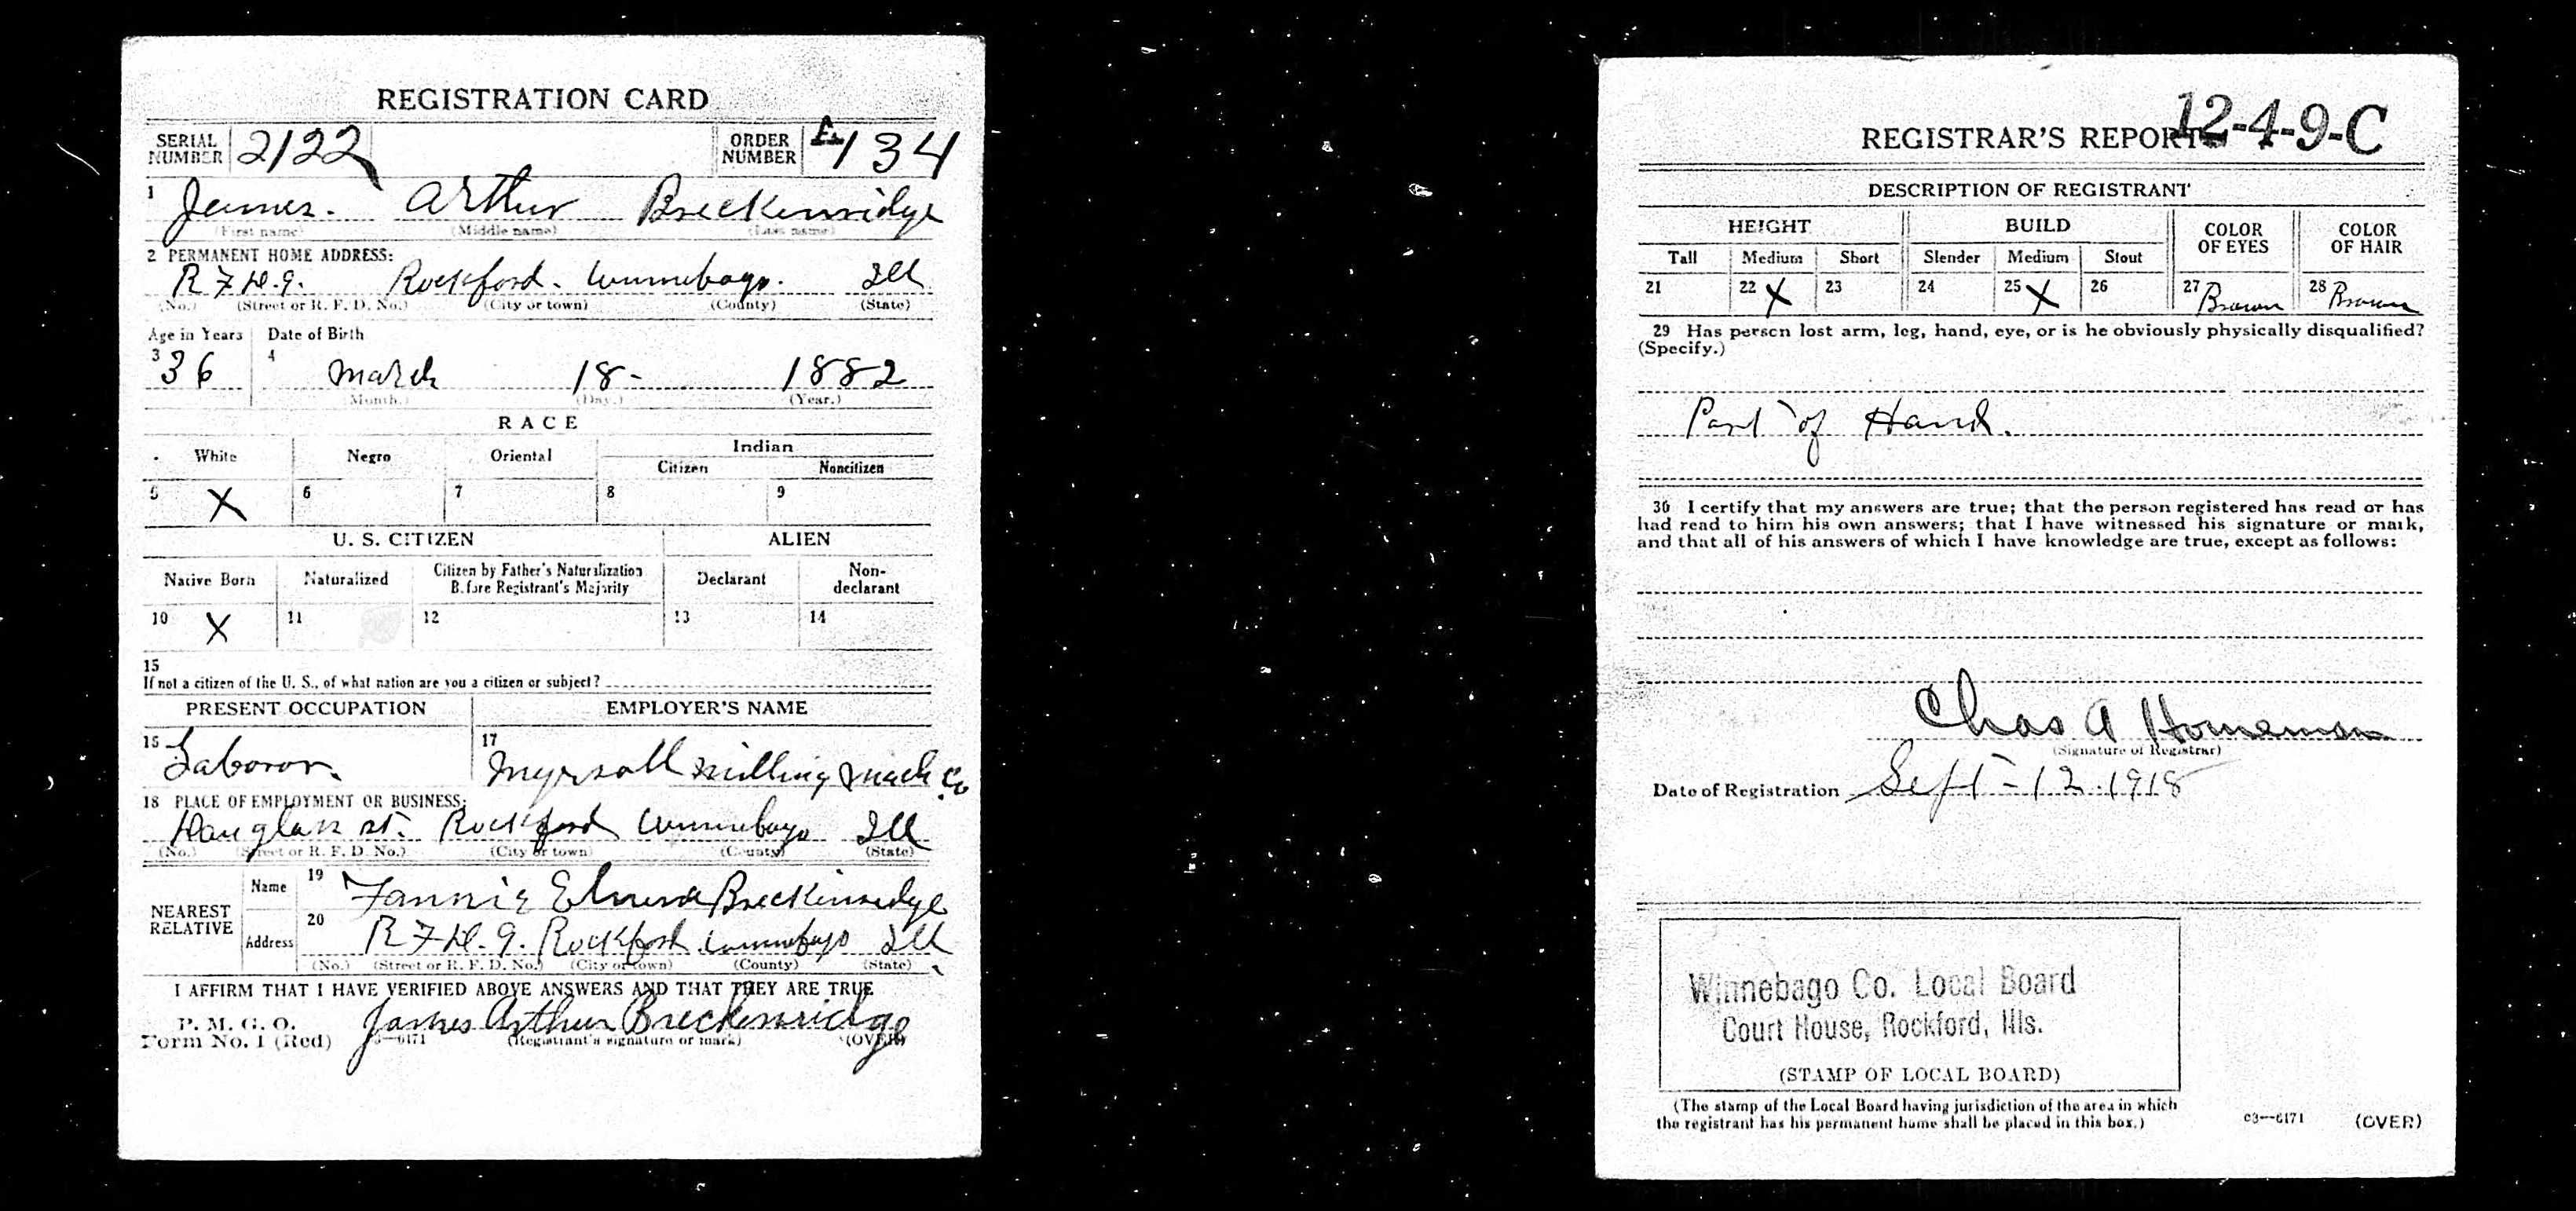 REGISTRATION CARD
SERIAL NUMBER 2122 ORDER NUMBER 134
1 James. Arthur Breckenridge
(First name) (Middle name) (Last name)
2 PERMANENT HOME ADDRESS:
R F D. 9. Rockford. Winnebago. Ill
(No.) (Street or R. F. D. No.) (City or town) (County) (State)
Age in Years Date of Birth
3 36 4 March 18- 1882
(Month.) (Day.) (Year.)
RACE
White Negro Oriental Indian
Citizen Noncitizen
5 X 6 7 8 9
U. S. CITIZEN ALIEN
Native Born Naturalized Citizen by Father's Naturalization Before Registrant's Majority Declarant Non-declarant
10 X 11 12 13 14
15
If not a citizen of the U. S., of what nation are you a citizen or subject?
PRESENT OCCUPATION EMPLOYER'S NAME
16 Laboror. 17 Ingersoll milling Mach Co
18 PLACE OF EMPLOYMENT OR BUSINESS:
st. Rockford Winnebago Ill
(No.) (Street or R. F. D. No.) (City or town) (County) (State)
NEAREST RELATIVE
Name 19 Fannie Breckinridge
Address 20 R F D. 9. Rockford Winnebago Ill
(No.) (Street or R. F. D. No.) (City or town) (County) (State)
I AFFIRM THAT I HAVE VERIFIED ABOVE ANSWERS AND THAT THEY ARE TRUE
P. M. G. O.
Form No. 1 (Red) James Arthur Breckenridge
3—6171 (Registrant's signature or mark) (OVER)
12-4-9-C
REGISTRAR'S REPORT
DESCRIPTION OF REGISTRANT
HEIGHT BUILD COLOR OF EYES COLOR OF HAIR
Tall Medium Short Slender Medium Stout
21 22 X 23 24 25 X 26 27 Brown 28 Brown
29 Has person lost arm, leg, hand, eye, or is he obviously physically disqualified?
(Specify.)
Part of Hand.
30 I certify that my answers are true; that the person registered has read or has
had read to him his own answers; that I have witnessed his signature or mark,
and that all of his answers of which I have knowledge are true, except as follows:
Chas A Horneman
(Signature of Registrar)
Date of Registration Sept - 12. 1918
Winnebago Co. Local Board
Court House, Rockford, Ills.
(STAMP OF LOCAL BOARD)
(The stamp of the Local Board having jurisdiction of the area in which
the registrant has his permanent home shall be placed in this box.)
03—6171 (OVER)